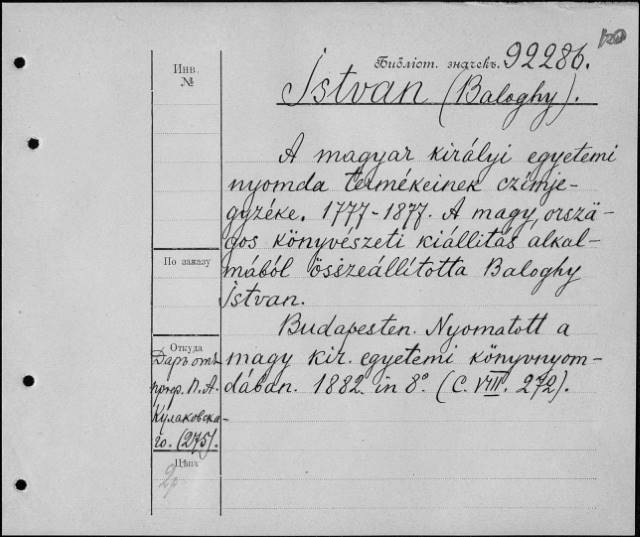 120
Библіот. значекъ. 92286.
Инв.
№
Istvan (Baloghy).
A magyar királyi egyetemi
nyomda termékeinek czímje-
gyzéke. 1777-1877. A magy, orszá-
gos könyvészeti kiállitás alkal-
mából összeállította Baloghy
Istvan.
Budapesten. Nyomatott a
magy kir. egyetemi könyvnyom-
dában. 1882. in 8° (C. VIII. 272).
По заказу
Откуда
Даръ отъ
проф. П. А.
Кулаковска-
го. (275).
Цѣна
2р